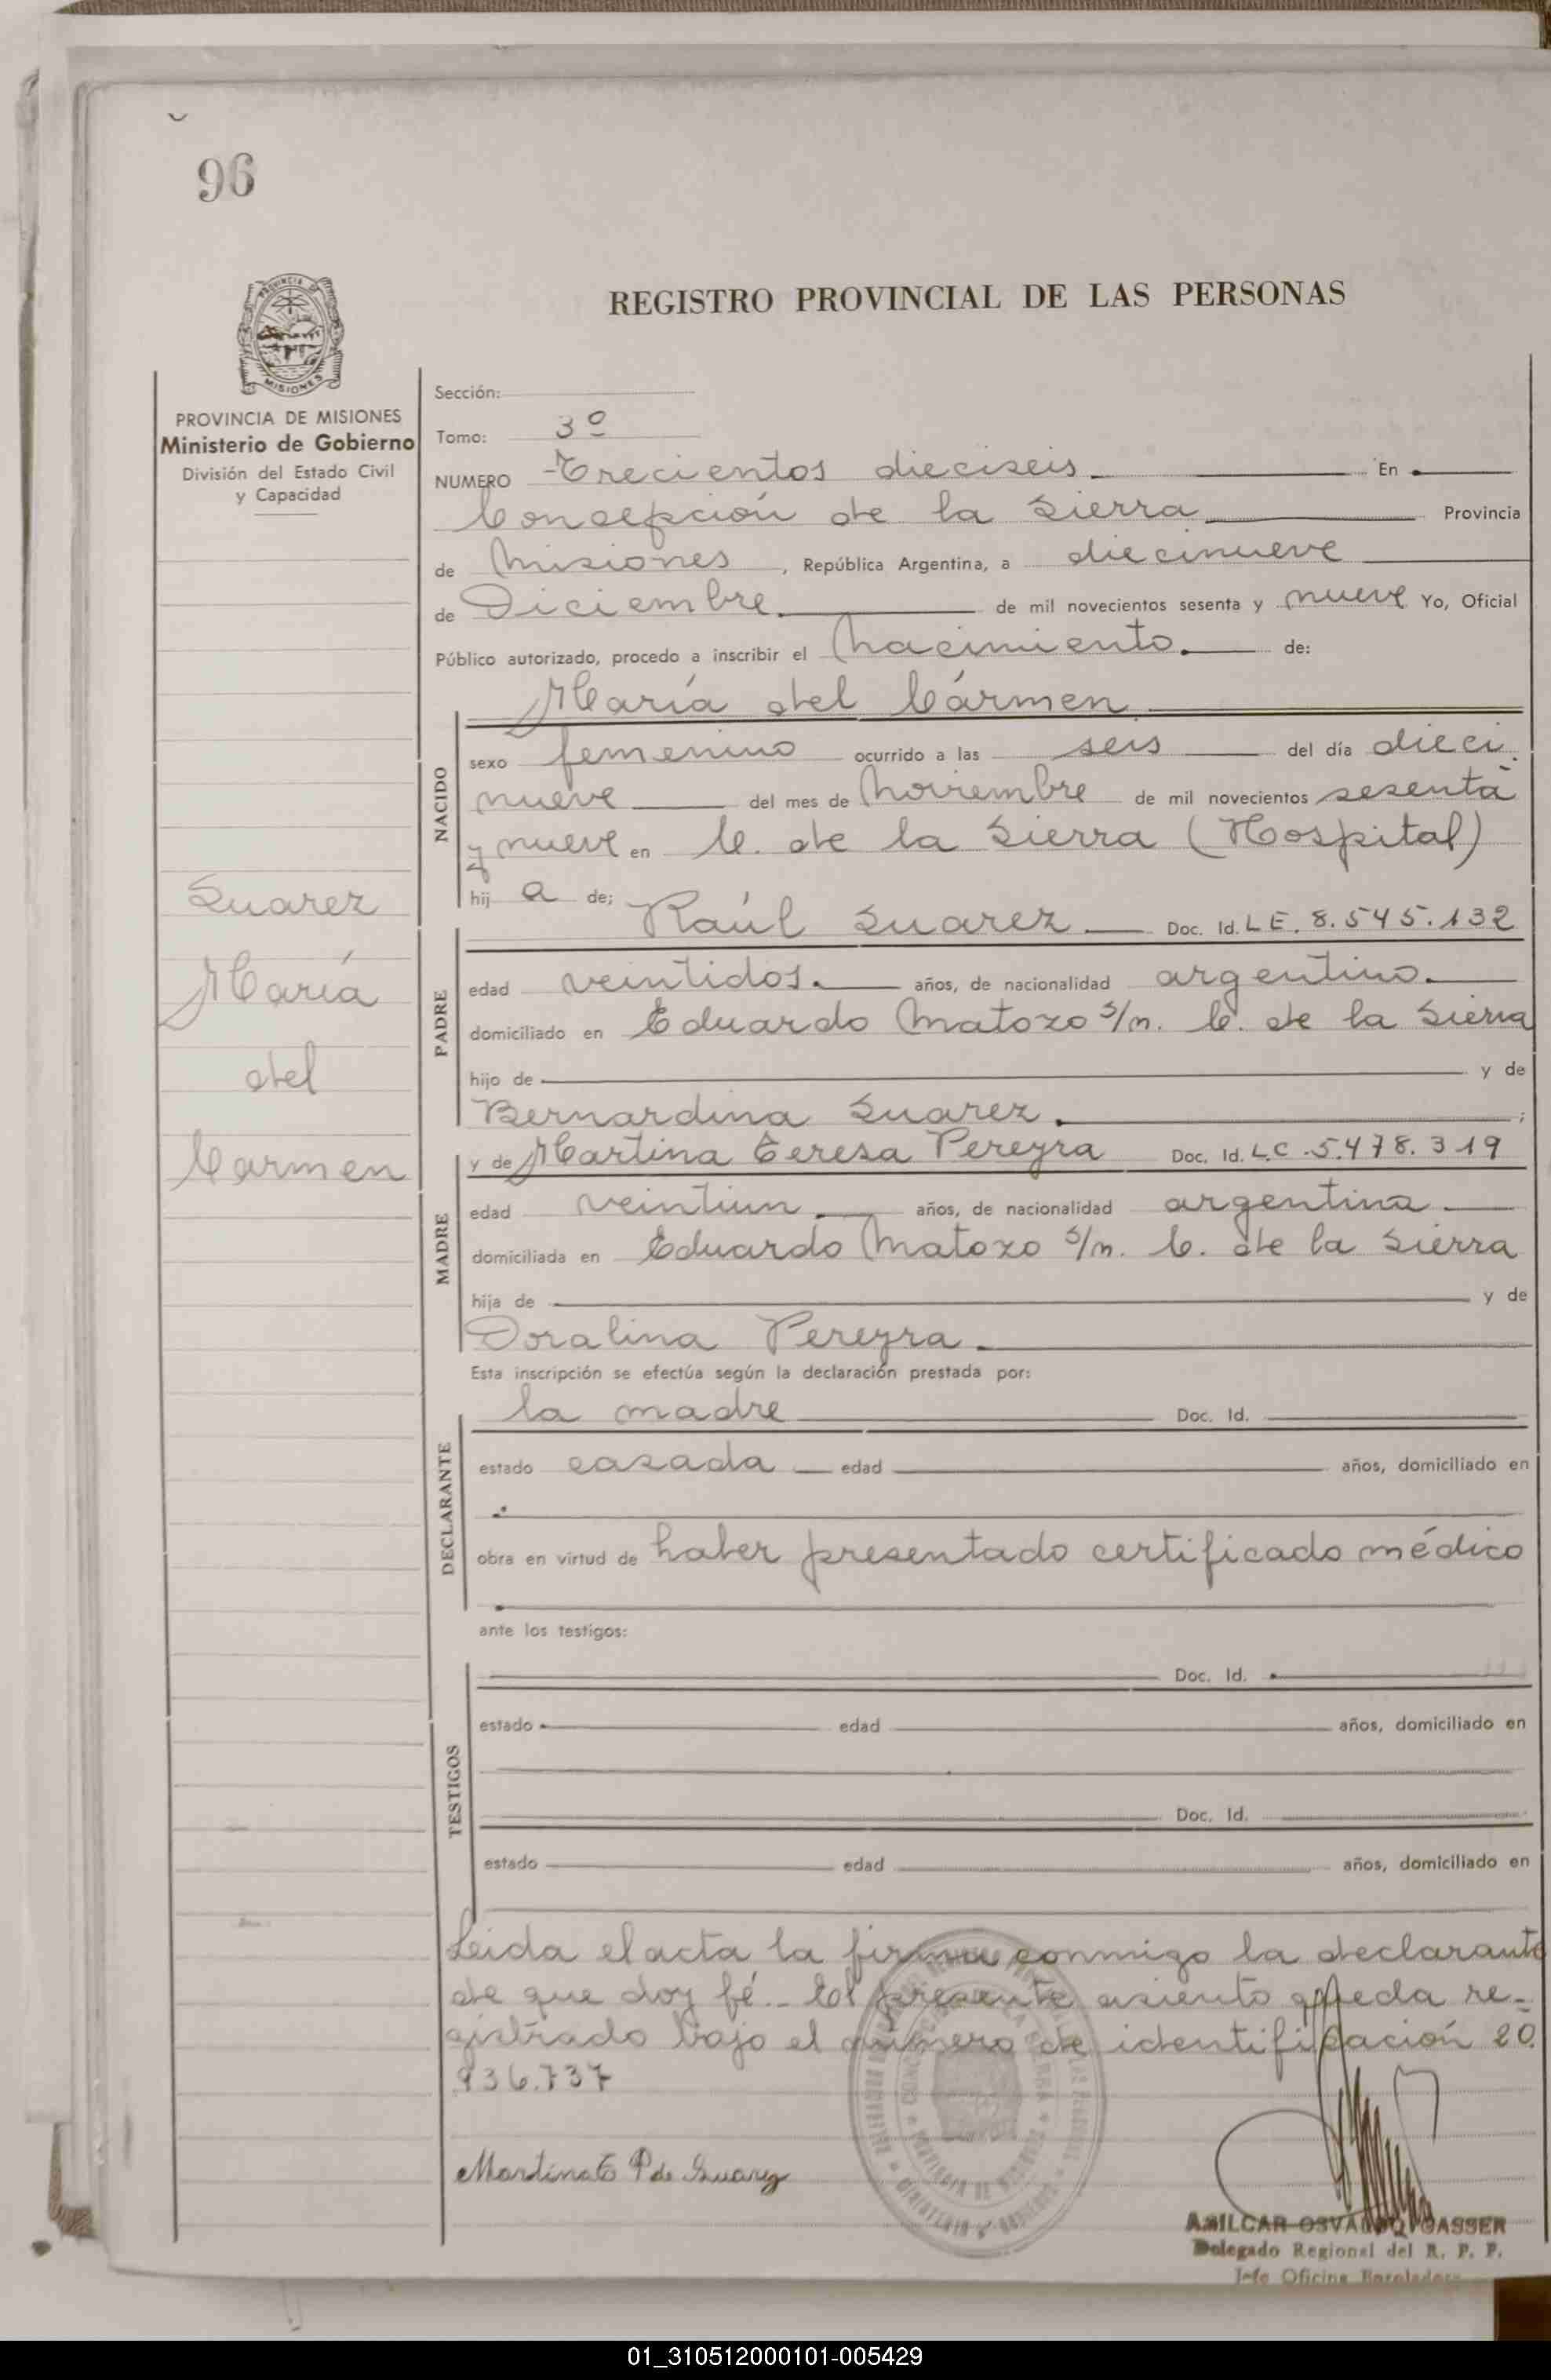 96
REGISTRO PROVINCIAL DE LAS PERSONAS
PROVINCIA DE MISIONES
Ministerio de Gobierno
División del Estado Civil
y Capacidad
Suarez
María
del
Carmen
Sección:
Tomo: 3º
NUMERO Trecientos dieciseis En
Concepción de la Sierra Provincia
de Misiones, República Argentina, a diecinueve
de Diciembre de mil novecientos sesenta y nueve Yo, Oficial
Público autorizado, procedo a inscribir el Nacimiento de:
María del Cármen
NACIDO
sexo femenino ocurrido a las seis del día dieci
nueve del mes de Noviembre de mil novecientos sesenta
y nueve en C. de la Sierra (Hospital)
hij a de;
PADRE
Raúl Suarez Doc. Id. L E. 8.545.132
edad veintidos. años, de nacionalidad argentino.
domiciliado en Eduardo Matozo s/n. C. de la Sierra
hijo de y de
Bernardina Suarez. ;
MADRE
y de Martina Teresa Pereyra Doc. Id. L.C. 5.478.319
edad veintiun años, de nacionalidad argentina.
domiciliada en Eduardo Matozo s/n. C. de la Sierra
hija de y de
Doralina Pereyra.
Esta inscripción se efectúa según la declaración prestada por:
DECLARANTE
la madre Doc. Id.
estado casada edad años, domiciliado en
obra en virtud de haber presentado certificado médico
ante los testigos:
TESTIGOS
Doc. Id.
estado edad años, domiciliado en
Doc. Id.
estado edad años, domiciliado en
Leida el acta la firma conmigo la declarante
de que doy fé.- El presente asiento queda re-
gistrado bajo el número de identificación 20.
936.737
Martina T P de Suarez
AMILCAR OSVALDO GASSER
Delegado Regional del R. P. P.
Jefe Oficina
01_310512000101-005429